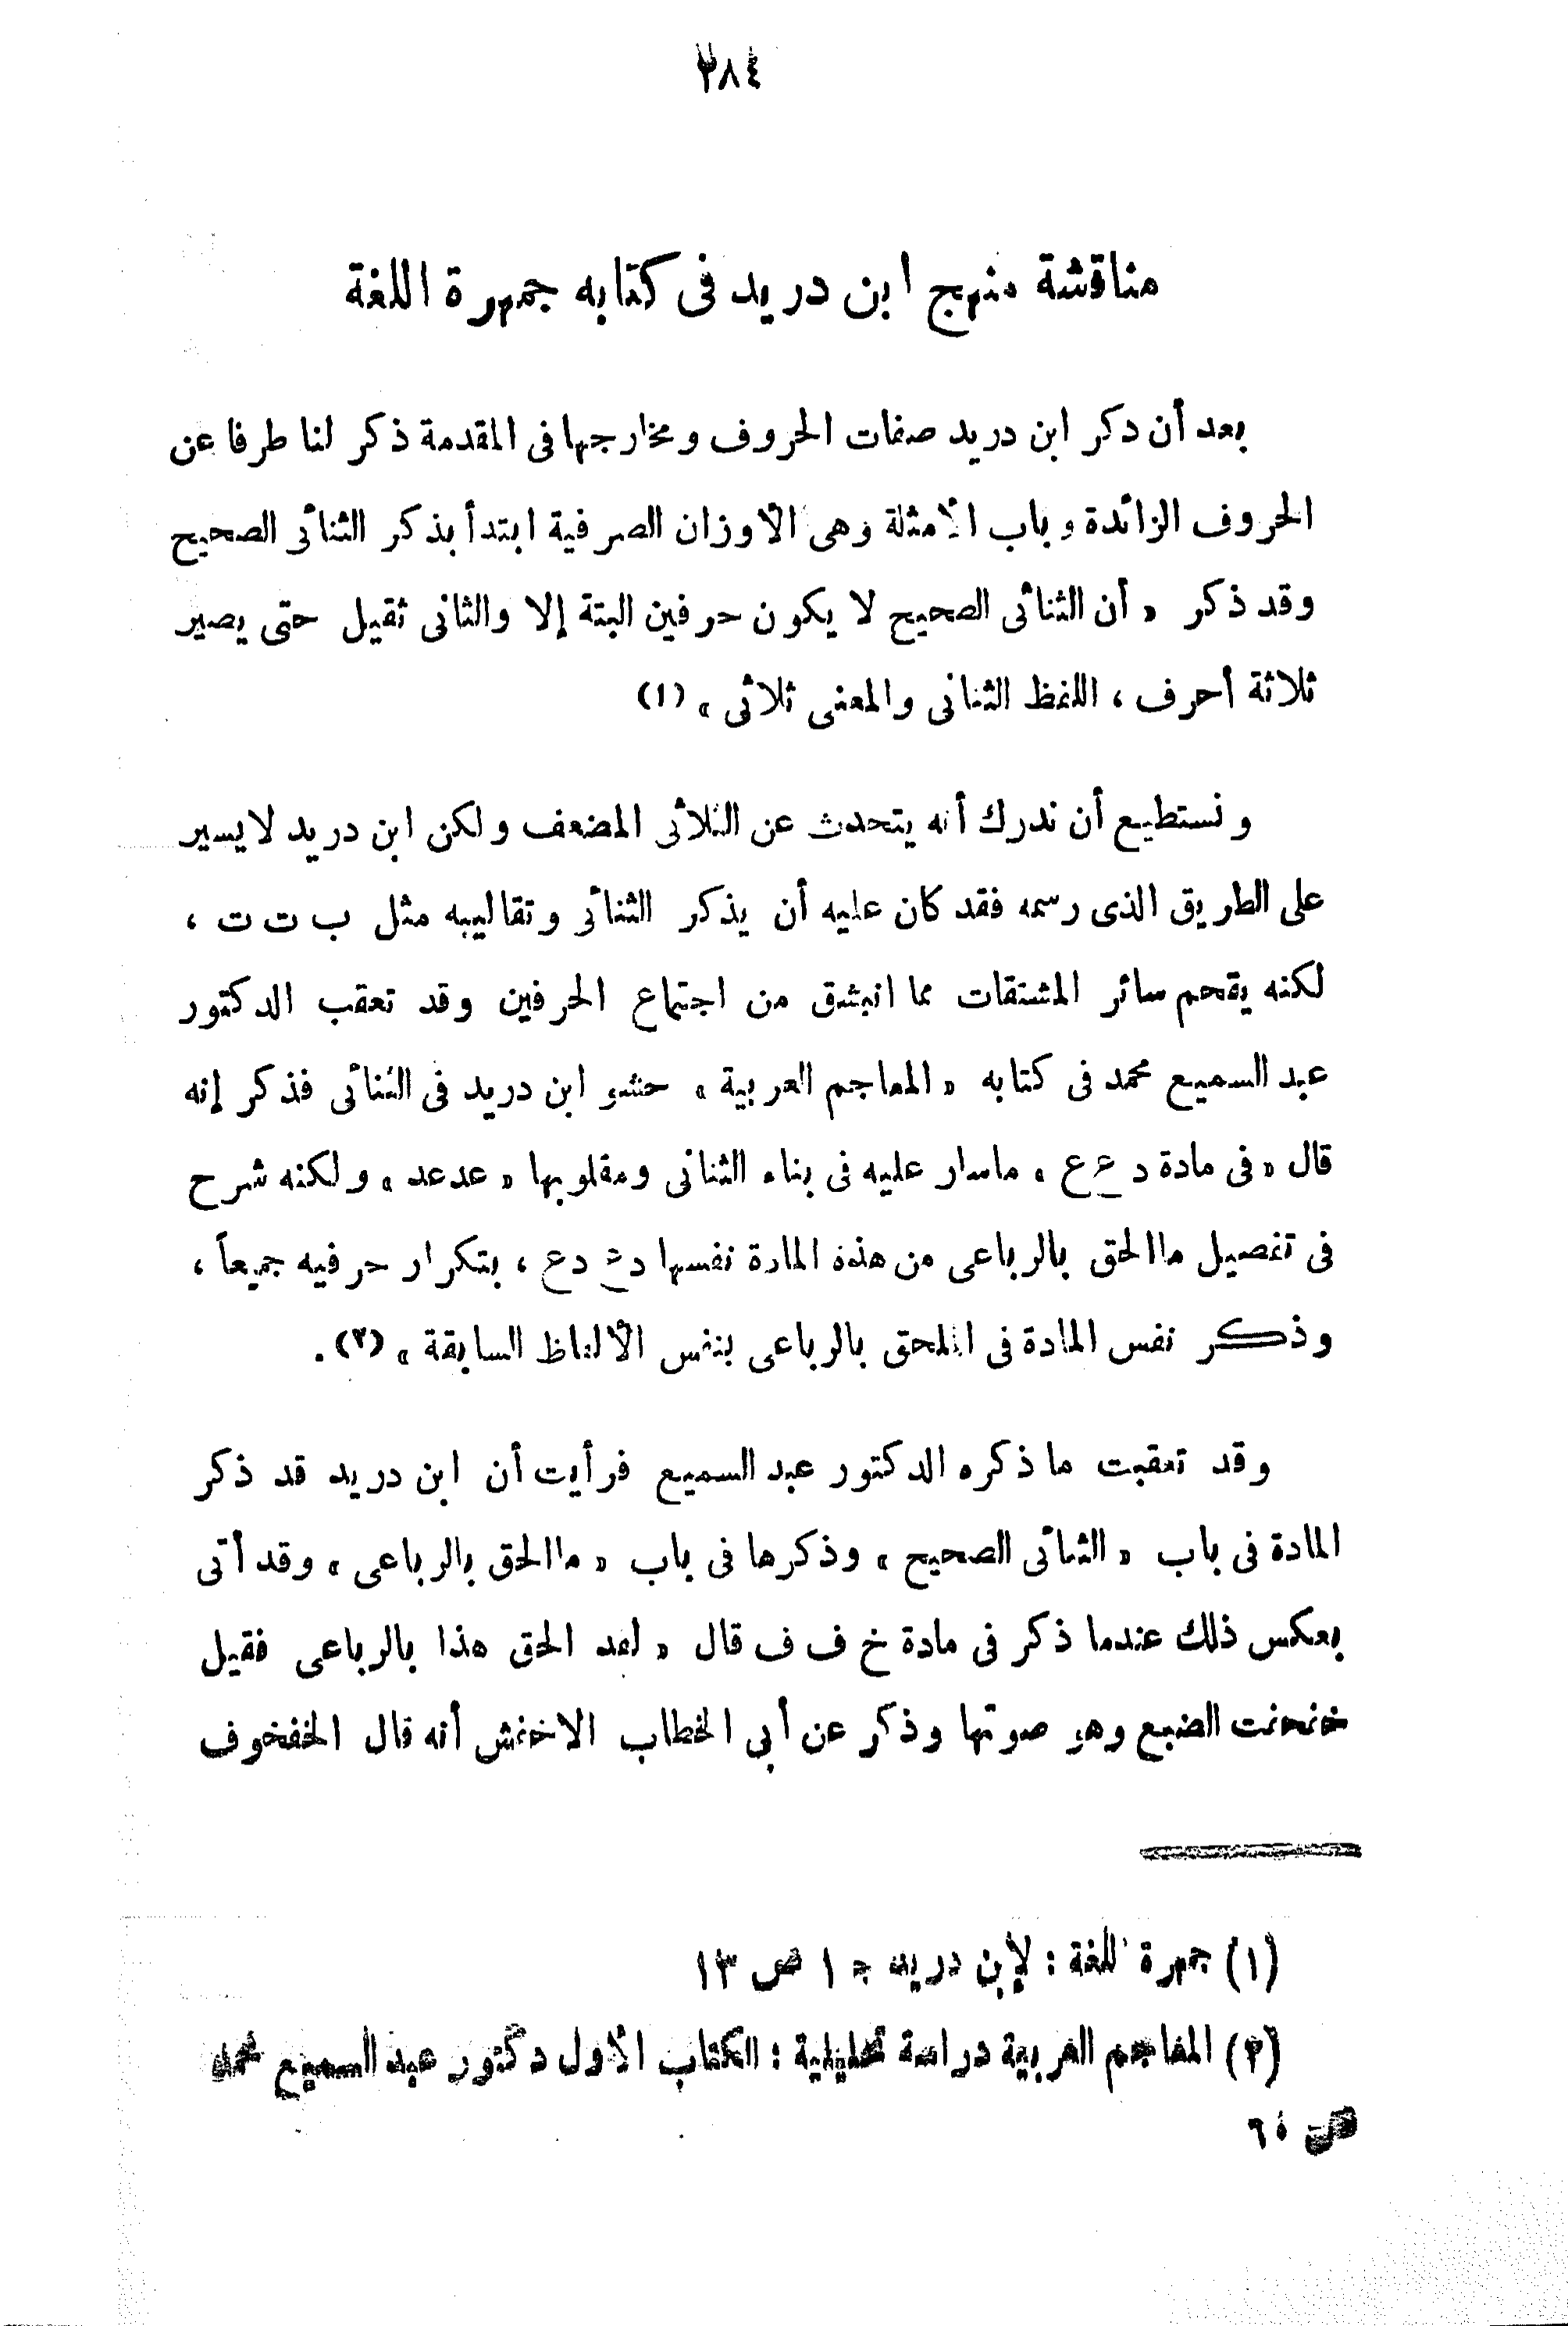 ٢٨٤
مناقشة منهج ابن دريد فى كتابه جمهرة اللغة
بعد أن ذكر ابن دريد صفات الحروف ومخارجها فى المقدمة ذكر لنا طرفا عن
الحروف الزائدة وباب الأمثلة وهى الأوزان الصرفية ابتدأ بذكر الثنائى الصحيح
وقد ذكر « أن الثنائى الصحيح لا يكون حرفين البتة إلا والثانى ثقيل حتى يصير
ثلاثة أحرف ، اللفظ الثنانى والمعنى ثلاثى » (١)
ونستطيع أن ندرك أنه يتحدث عن الثلاثى المضعف ولكن ابن دريد لا يسير
على الطريق الذى رسمه فقد كان عليه أن يذكر الثنائى وتقاليبه مثل ب ت ت ،
لكنه يقحم سائر المشتقات مما انبثق من اجتماع الحرفين وقد تعقب الدكتور
عبد السميع محمد فى كتابه « المعاجم العربية » حشو ابن دريد فى الثنائى فذكر إنه
قال « فى مادة د ع ع » ماسار عليه فى بناء الثنانى ومقلوبها « عدعد » ولكنه شرح
فى تفصيل ما الحق بالرباعى من هذه المادة نفسها دع دع ، بتكرار حرفيه جميعاً ،
وذكر نفس المادة فى الملحق بالرباعى بنفس الألفاظ السابقة » (٢) .
وقد تعقبت ما ذكره الدكتور عبد السميع فرأيت أن ابن دريد قد ذكر
المادة فى باب « الثنائى الصحيح » وذكرها فى باب « ما الحق بالرباعى » وقد أتى
بعكس ذلك عندما ذكر فى مادة خ ف ف قال « لقد الحق هذا بالرباعى فقيل
خفخفت الضبع وهو صوتها وذكر عن أبى الخطاب الاخفش أنه قال الخفخوف
(١) جمهرة اللغة : لإبن دريد ج ١ ص ١٣
(٢) المعاجم العربية دراسة تحليلية : الكتاب الأول دكتور عبد السميع محمد
ص ٦٠